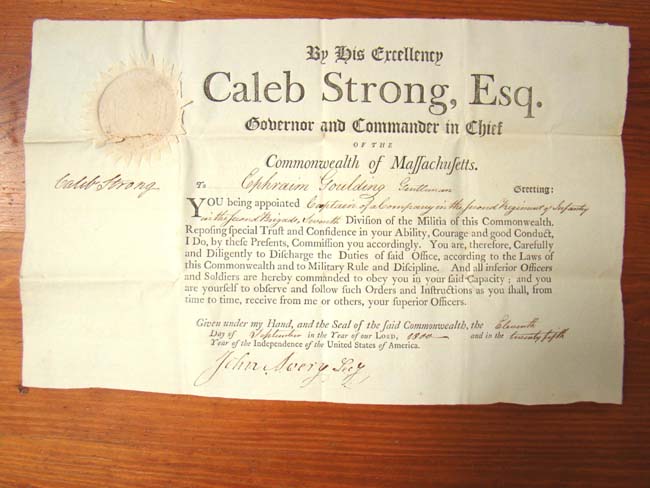 By His Excellency
Caleb Strong, Esq.
Governor and Commander in Chief
OF THE
Commonwealth of Maſſachuſetts.
Caleb Strong
To Ephraim Goulding Gentleman Greeting:
YOU being appointed Captain of a Company in the second Regiment of Infantry
in the second Brigade, Seventh Diviſion of the Militia of this Commonwealth.
Repoſing ſpecial Truſt and Confidence in your Ability, Courage and good Conduct,
I Do, by theſe Preſents, Commiſſion you accordingly. You are, therefore, Carefully
and Diligently to Diſcharge the Duties of ſaid Office, according to the Laws of
this Commonwealth and to Military Rule and Diſcipline. And all inferior Officers
and Soldiers are hereby commanded to obey you in your ſaid Capacity; and you
are yourſelf to obſerve and follow ſuch Orders and Inſtructions as you ſhall, from
time to time, receive from me or others, your ſuperior Officers.
Given under my Hand, and the Seal of the ſaid Commonwealth, the Eleventh
Day of September in the Year of our LORD, 1800 and in the twenty fifth
Year of the Independence of the United States of America.
John Avery Secy